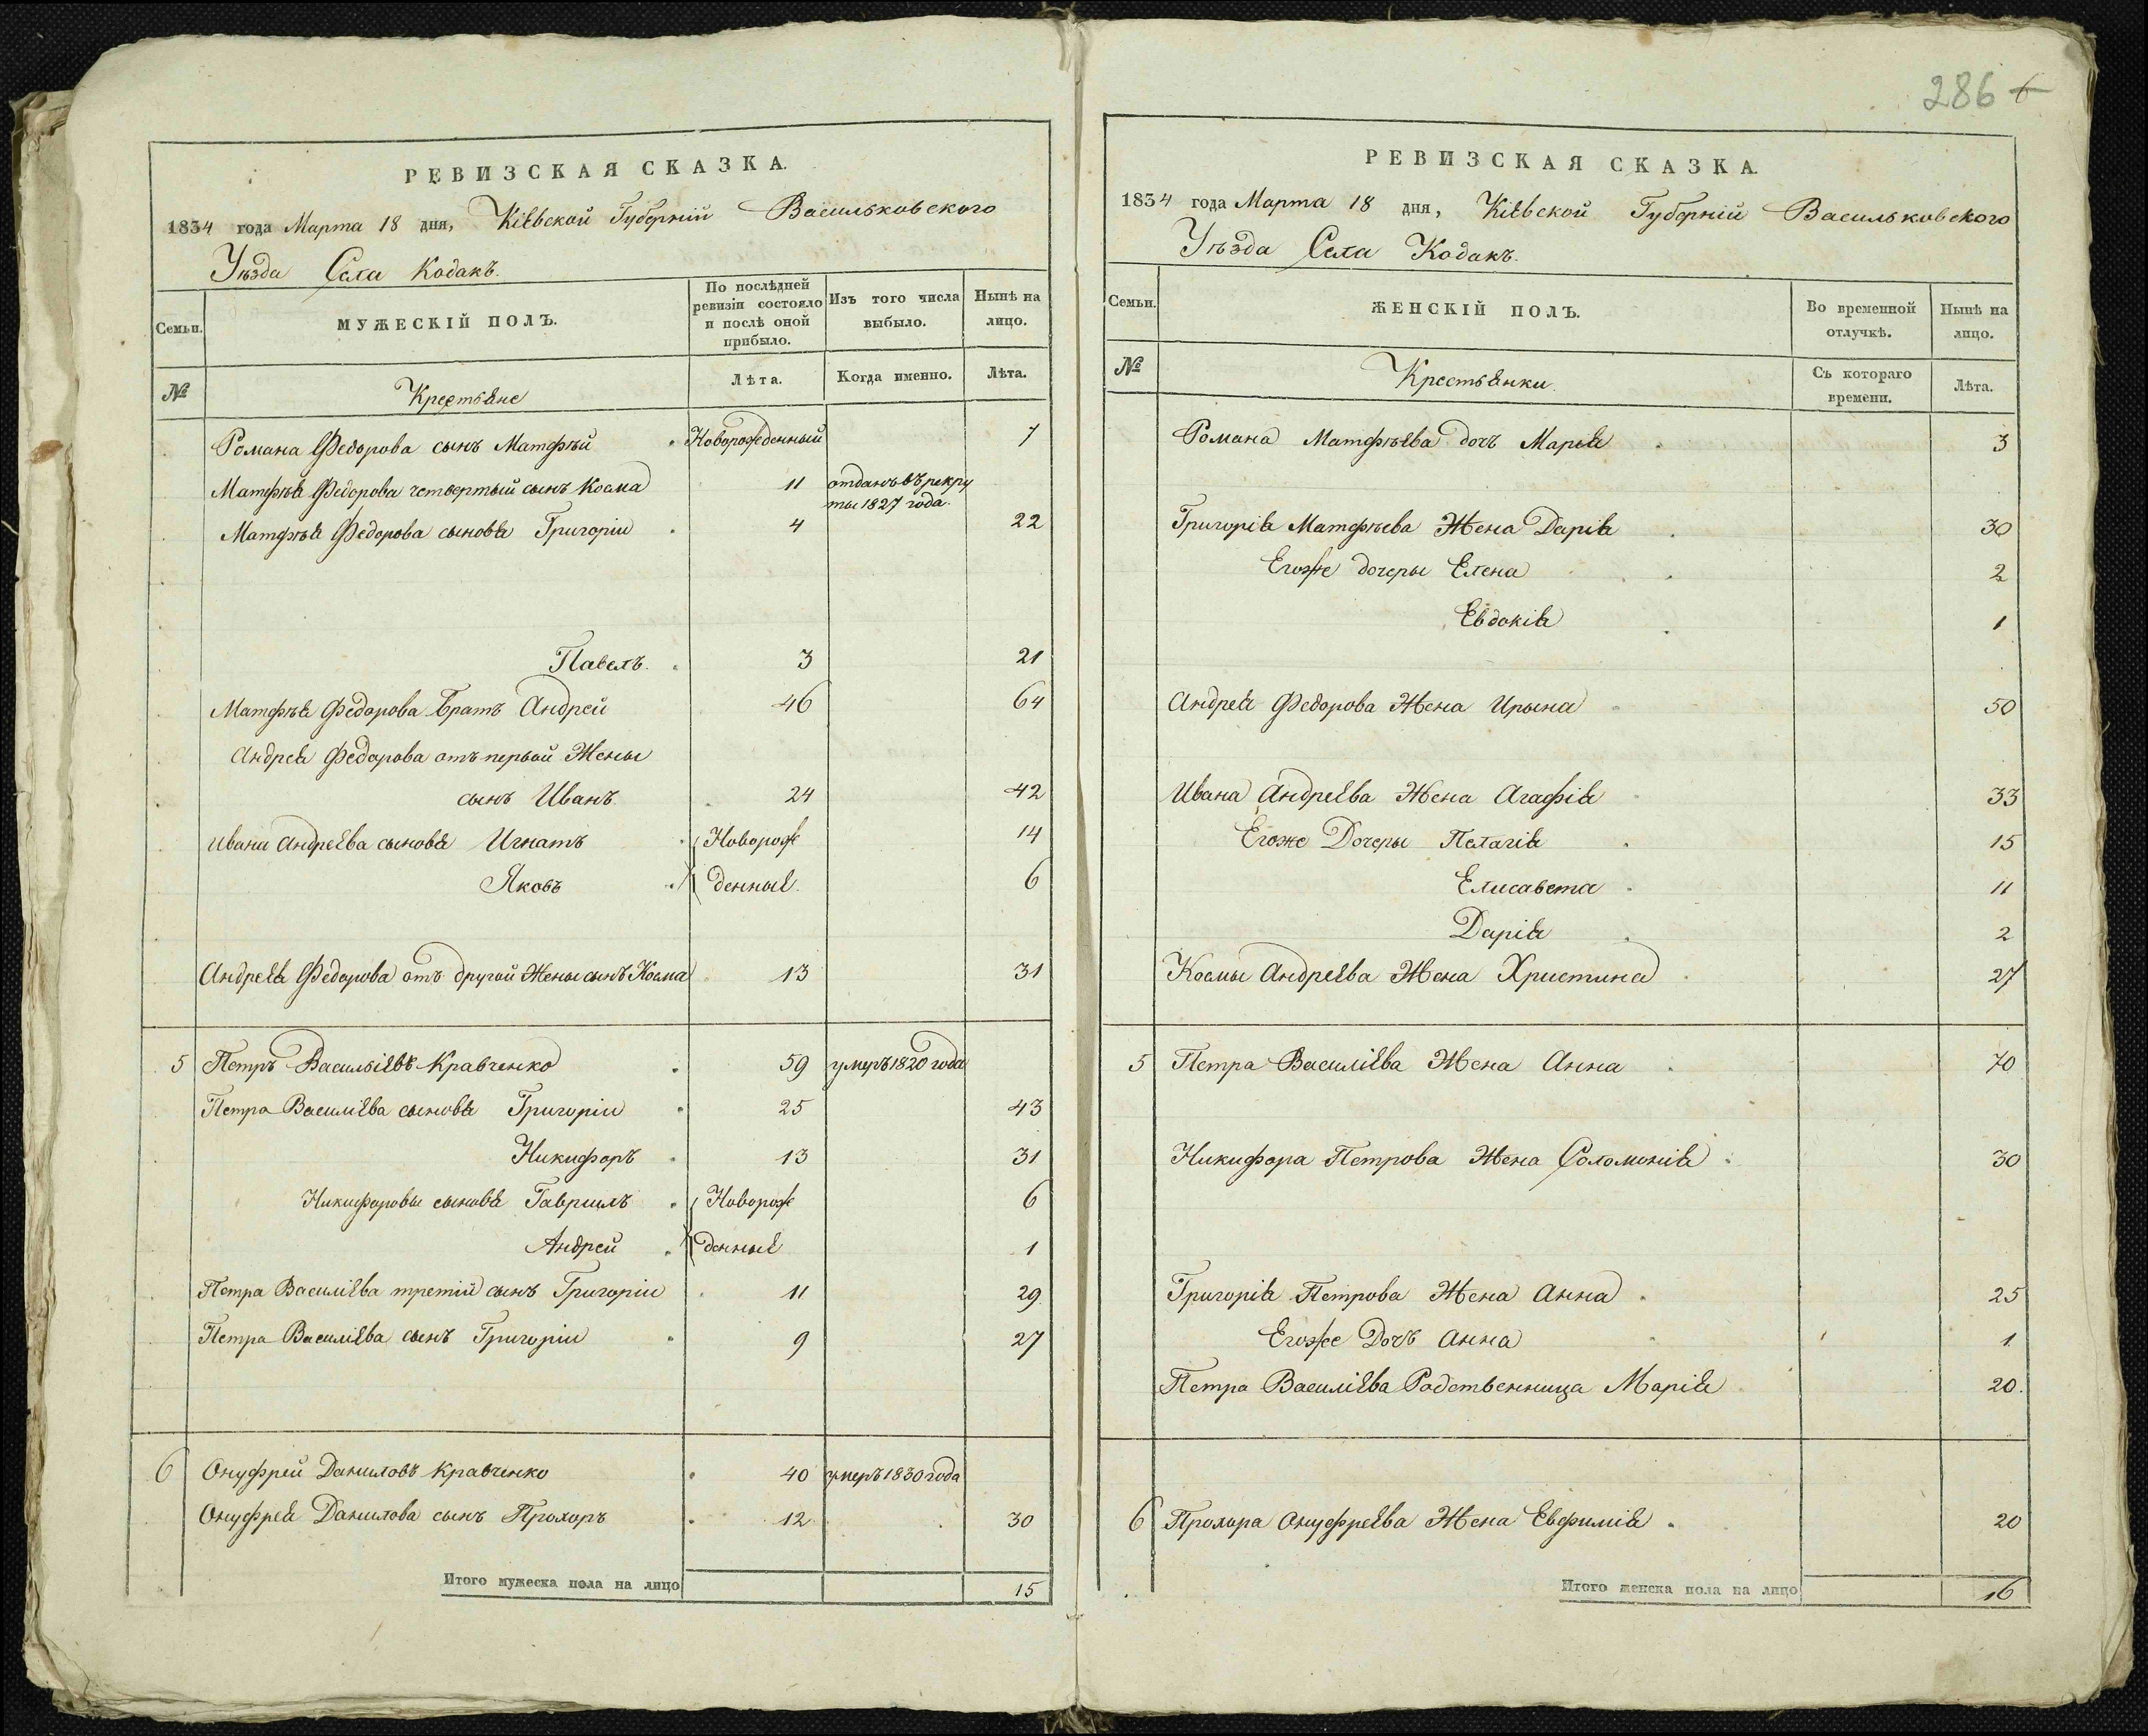 286 6
РЕВИЗСКАЯ СКАЗКА.
1834 года Марта 18 дня, Кіевской Губерніи Васильковского
Уѣзда Села Кодакъ.
Семьи.
МУЖЕСКІЙ ПОЛЪ.
По послѣдней
ревизіи состояло
и послѣ оной
прибыло.
Изъ того числа
выбыло.
Нынѣ на
лицо.
№
Крестьяне
Лѣта.
Когда именно.
Лѣта.
Романа Федорова сынъ Матфѣй Новорожденный 7
Матфѣя Федорова четвертый сынъ Косма 11 отданъ въ рекру
ты 1827 года.
Матфѣя Федорова сыновя Григоріи 4 22
Павелъ. 3 21
Матфѣя Федорова братъ Андрей 46 64
Андрея Федорова отъ первой Жены
сынъ Иванъ. 24 42
Ивана Андреева сыновя Игнатъ Еовнорож 14
Яковъ денные. 6
Андрея Федорова отъ другой Жены сынъ Косма 13 31
5 Петръ Васильевъ Кравченко 59 умеръ 1820 года
Петра Василіева сыновя Григоріи 25 43
Никифоръ 13 31
Никифоровы сыновя Гавриилъ Новорож 6
Андрей денные 1
Петра Василіева третій сынъ Григоріи 11 29
Петра Василіева сынъ Григоріи 9 27
6 Онуфрей Даниловъ Кравченко 40 умеръ 1830 года
Онуфрея Данилова сынъ Прохоръ 12 30
Итого мужеска пола на лицо 15
РЕВИЗСКАЯ СКАЗКА.
1834 года Марта 18 дня, Кіевской Губерніи Васильковского
Уѣзда Села Кодакъ.
Семьи.
ЖЕНСКІЙ ПОЛЪ.
Во временной
отлучкѣ.
Нынѣ на
лицо.
№
Крестьянки
Съ котораго
времени.
Лѣта.
Романа Матфѣева дочь Марья 3
Григорія Матфѣева Жена Дарія 30
Егоже дочеры Елена 2
Евдокія 1
Андрея Федорова Жена Ирына 50
Ивана Андреева Жена Агафія 33
Егоже Дочеры Пелагія 15
Елисавета 11
Дарія 2
Космы Андреева Жена Христина 27
5 Петра Василіева Жена Анна 70
Никифора Петрова Жена Соломонія 30
Григорія Петрова Жена Анна 25
Егоже Дочь Анна 1
Петра Василіева Родственница Марія 20.
6 Прохора Онуфреева Жена Евфимія 20
Итого женска пола на лицо 16